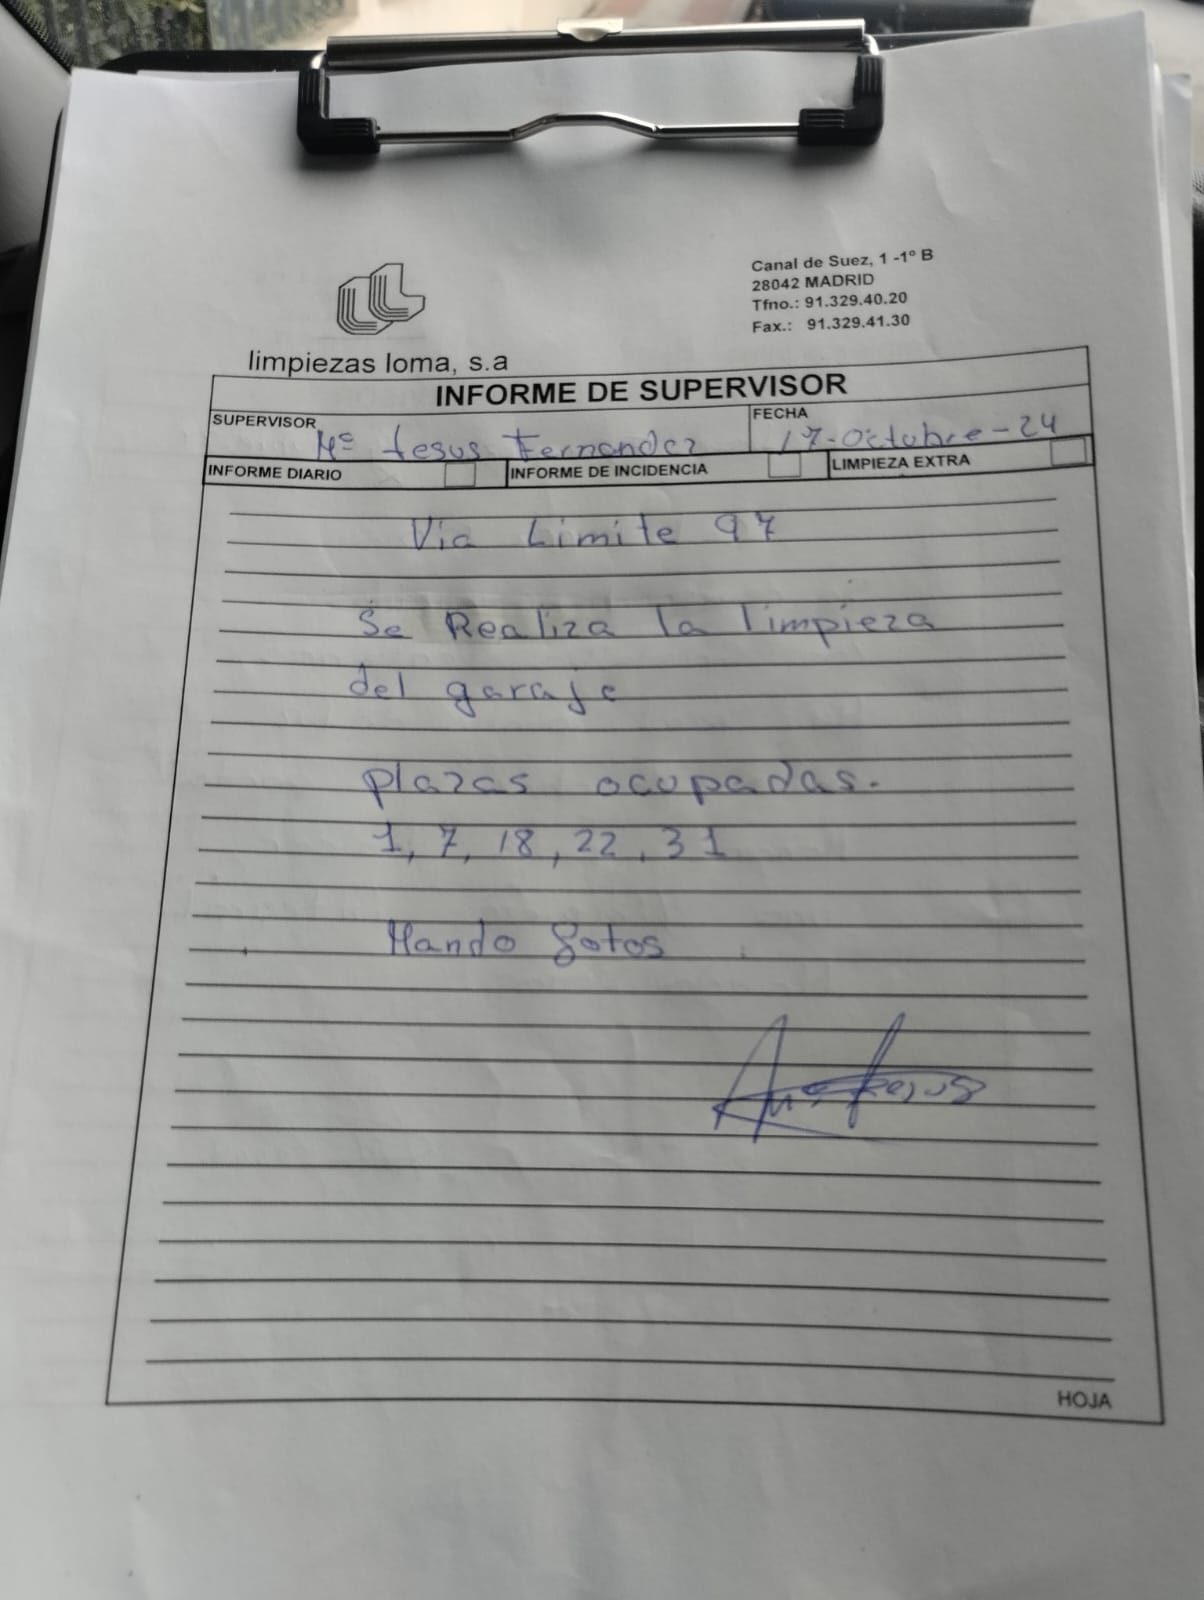 Canal de Suez, 1 -1º B
28042 MADRID
Tfno.: 91.329.40.20
Fax.: 91.329.41.30
limpiezas loma, s.a
INFORME DE SUPERVISOR
SUPERVISOR Mª Jesus Fernandez
FECHA 17-Octubre-24
INFORME DIARIO
INFORME DE INCIDENCIA
LIMPIEZA EXTRA
Via Limite 97
Se Realiza la limpieza
del garaje
plazas ocupadas.
1, 7, 18, 22, 31
Mando fotos
HOJA